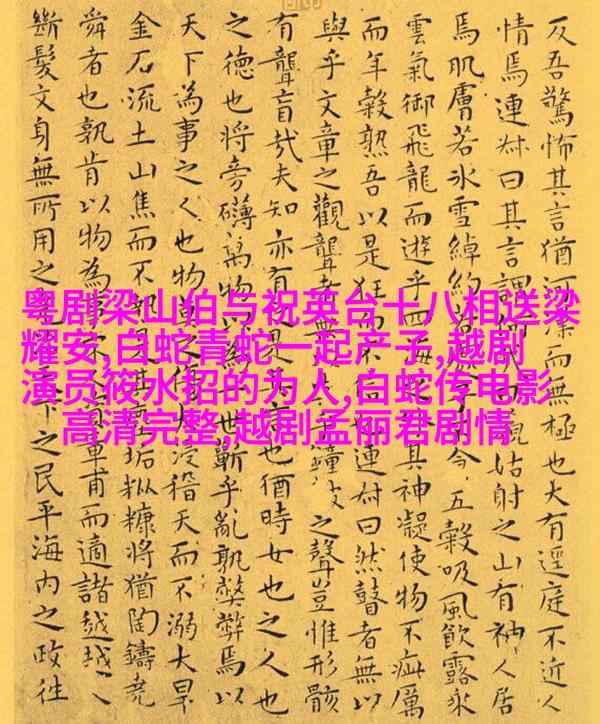 反吾驚怖其言猶河漢而無極也大有逕庭不近人
情焉連叔曰其言謂何哉曰藐姑射之山有神人居
焉肌膚若冰雪綽約若處子不食五穀吸風飲露乘
雲氣御飛龍而遊乎四海之外其神凝使物不疵厲
而年穀熟吾以是狂而不信也連叔曰然瞽者無以
與乎文章之觀聾者無以與乎鐘鼓之聲豈惟形骸
有聾盲哉夫知亦有之是其言也猶時女也之人也
之德也將旁礴萬物以為一世蘄乎亂孰弊弊焉以
天下為事之人也物莫之傷大浸稽天而不溺大旱
金石流土山焦而不熱是其塵垢粃糠將猶陶鑄堯
舜者也孰肯以物為事宋人資章甫而適諸越越人
斷髮文身無所用之堯治天下之民平海內之政往
粤剧梁山伯与祝英台十八相送梁
耀安,白蛇青蛇一起产子,越剧
演员筱水招的为人,白蛇传电影
高清完整,越剧孟丽君剧情